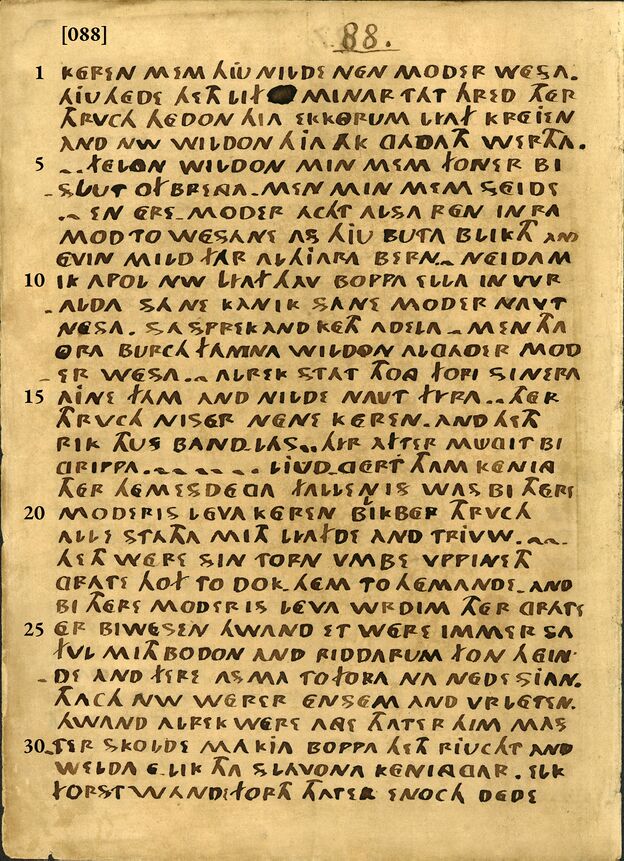 [088]
88.
1 KEREN MEM HIU NILDE NEN MODER WESA.
HIU HEDE HETH LIF MINAR THT HRED THER
THRVCH HEDON HIA EKKORUM LIAF KREIEN
AND NW WILDON HIA AK GADATH WERTHA.
5 FELON WILDON MIN MEM FONER BI
SLUT OFBRENGA MEN MIN MEM SEIDE
EN ERE MODER ACHT ALSA REN IN RA
MOD TO WESANE AS HIU BUTA BLIKTH AND
EVIN MILD FAR AL HIARA BERN NEIDAM
10 IK APOL NW LIAF HAV BOPPA ELLA IN WR
ALDA SA NE KANIK SA NE MODER NAVT
NESA. SA SPREK AND KETH ADELA MEN THA
ORA BURCH FAMNA WILDON ALGADER MOD
ER WESA ALREK STAT THONG FORI SINERA
15 AINE FAM AND NILDE NAVT FYRA THER
THRVCH NISER NENE KEREN. AND HETH
RIK THUS BAND LAS HYR AFTER MUGIT BI
GRIPPA LIUD GERT THAM KENING
THER HEMESDEGA FALLEN IS WAS BI THERE
20 MODERIS LEVA KEREN BIKBER THRVCH
ALLE STATA MITH LIAFDE AND TRIVW.
HETH WERE SIN TORN VMBE VPPIN ETH
GRATE HOF TO DOK HEM TO HEMANDE AND
BI THERE MODERIS LEVA WRDIM THER GRATE
25 ER BIWESEN HWAND ET WERE IMMER SA
FUL MITH BODON AND RIDDARUM FON HEIN
DE AND FERE AS MA TO FORA NA NEDE SIAN.
THACH NW WERER ENSEM AND VRLETEN.
HWAND ALREK WERE ANG THATER HIM MAS
30 TER SKOLDE MAKIA BOPPA HETH RIUCHT AND
WELDA ELIK THA SLAVONA KENINGGAR. ELK
FORST WANDE FORTH THATER ENOCH DEDE